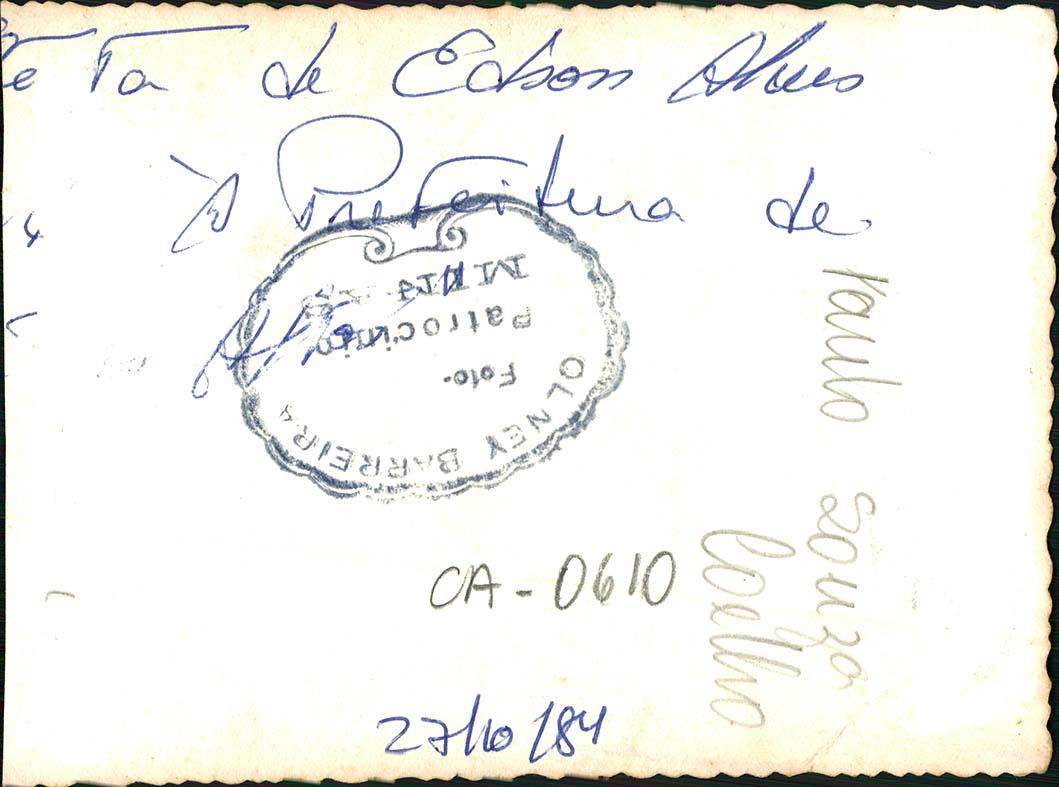 Ta de Edson Alves
À Prefeitura de
OLNEY BARREIRA
Foto.
Patrocinio
MINAS
Paulo
Souza
Coelho
CA-0610
27/10/84